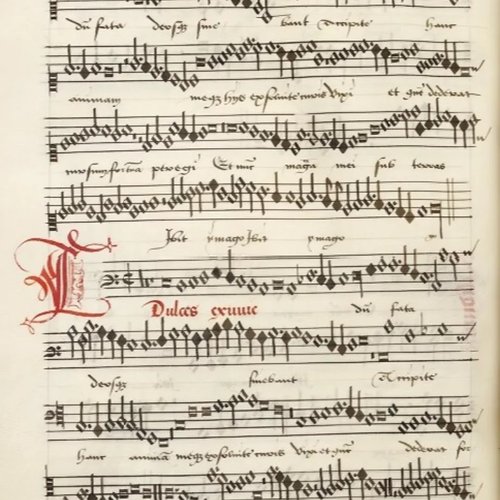 dū fata deosqȝ sine bant Accipite hanc
animam meqȝ hijs exsoluite curis vixi et quē dederat
cursum fortūa peregi Et nūc magna mei sub terras
Ibit ymago Ibit ymago
Dulces exuuie dū fata
deosqȝ sinebant Accipite
hanc animā meqȝ exsoluite curis vixi et quē dederat for